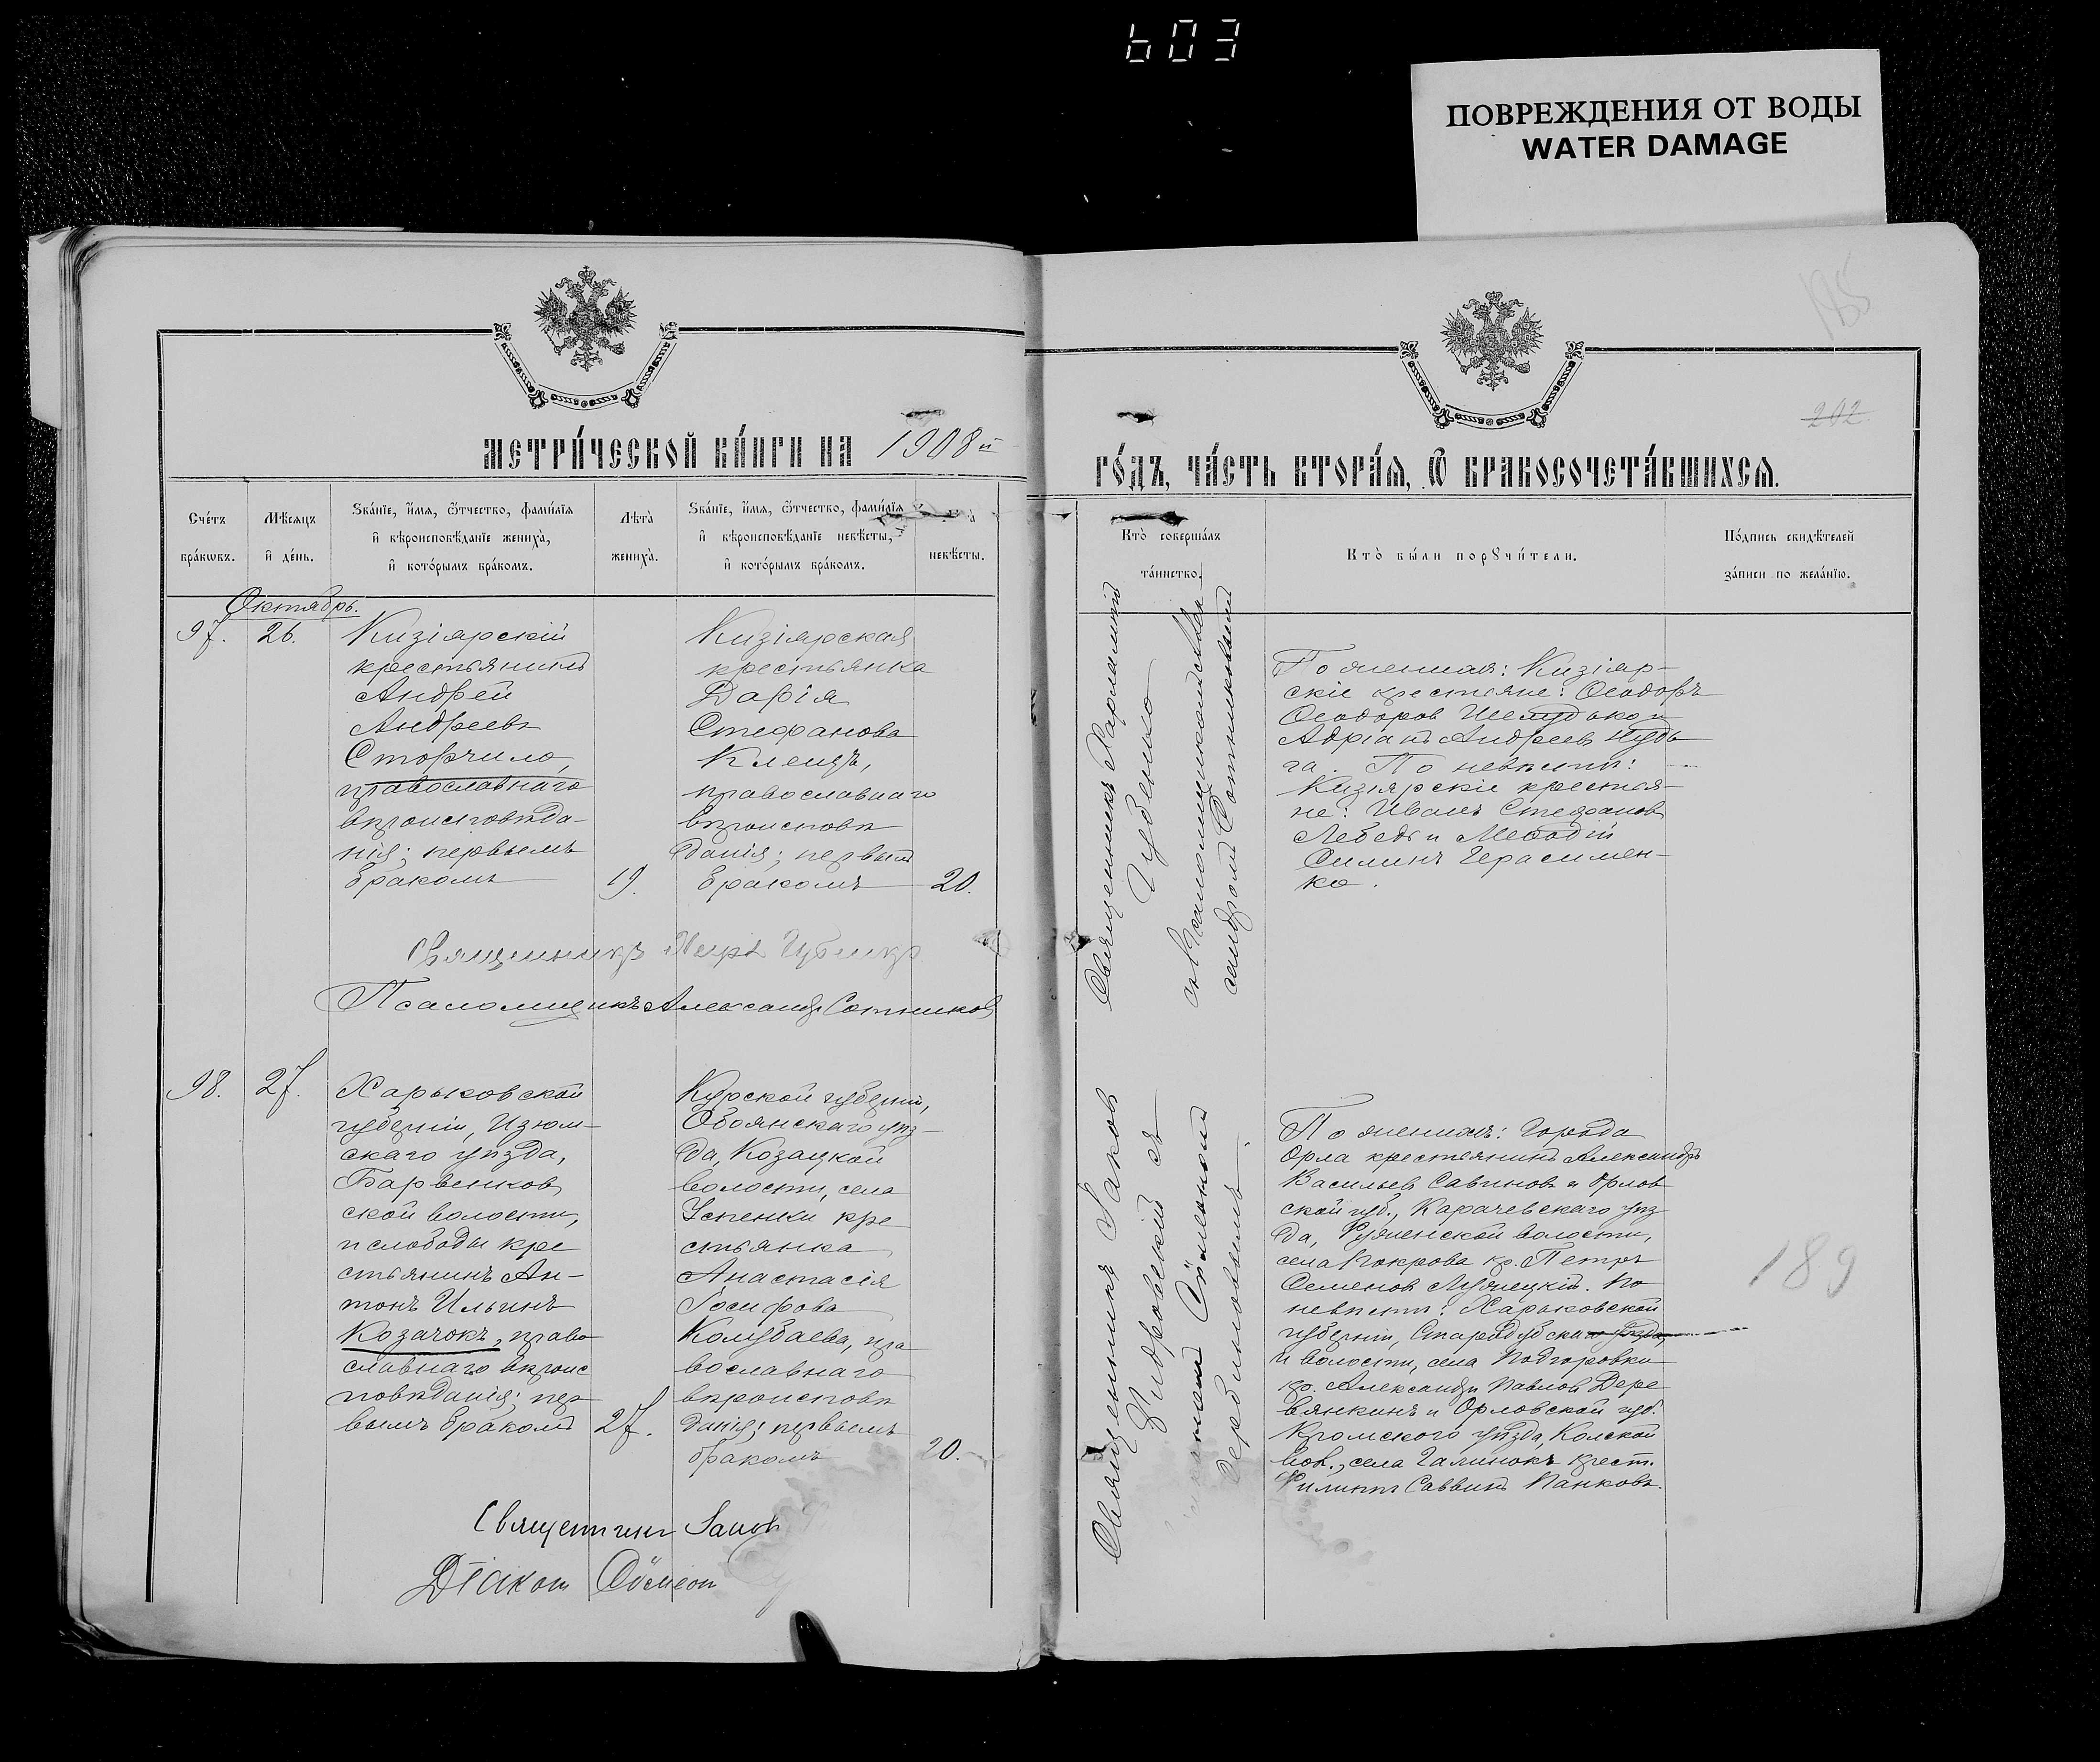 603
ПОВРЕЖДЕНИЯ ОТ ВОДЫ
WATER DAMAGE
195
202
МЕТРИ́ЧЕСКОЙ КНИ́ГИ НА 1908й
ГО́ДЪ, ЧА́СТЬ ВТОРА́Я, Ѿ БРАКОСОЧЕТА́ВШИХСЯ.
Сче́тъ
бра́кѡвъ.
Мѣ́сяцъ
и҆ де́нь.
Ѕва́нїе, и҆́мя, ѻ҆́тчество, фами́лїя
и҆ вѣроисповѣ́данїе жениха̀,
и҆ кото́рымъ бра́комъ.
Лѣта̀
жениха̀.
Ѕва́нїе, и҆́мя, ѻ҆́тчество, фами́лїя
и҆ вѣроисповѣ́данїе невѣ́сты,
и҆ кото́рымъ бра́комъ.
невѣ́сты.
Кто̀ соверша́лъ
та́инство.
Кто̀ бы́ли порꙋчи́тели.
По́дпись свидѣ́телей
за́писи по жела́нїю.
Октябрь.
97.
26.
Кизіярскій
крестьянинъ
Андрей
Андреевъ
Сторчило,
православнаго
вѣроисповѣда-
нія; первымъ
бракомъ
19.
Кизіярская
крестьянка
Дарія
Стефанова
Клещъ,
православнаго
вѣроисповѣ
данія; первымъ
бракомъ
20.
Священникъ Харлампій
Губенко
съ Псаломщикомъ Алек
сандромъ Сотниковымъ
По женихѣ: Кизіяр-
скіе крестьяне: Ѳеодоръ
Ѳеодоров Шемудько и
Адріанъ Андреевъ Нуд
га. По невѣстѣ:
Кизіярскіе крестья-
не: Иванъ Стефанов
Лебедь и Меѳодій
Силинъ Герасимен-
ко.
Священникъ
Псаломщикъ Александръ Сотниковъ
98.
27.
Харьковской
губерніи, Изюм-
скаго уѣзда,
Барвенков
ской волости,
и слободы кре
стьянинъ Ан-
тонъ Ильинъ
Козачокъ, право
славнаго вѣроис
повѣданія; пер
вымъ бракомъ
27.
Курской губерніи,
Обоянскаго уѣз-
да, Козацкой
волости, села
Успенки кре
стьянка
Анастасія
Іосифова
Колубаева, пра
вославнаго
вѣроисповѣ
данія; первымъ
бракомъ
20.
Священникъ Іаков
съ
По женихѣ: Города
Орла крестьянинъ Александръ
Васильевъ Савиновъ и Орлов
ской губ., Карачевскаго уѣз
да, волости,
села Покрова кр. Петръ
Семенов. По
невѣстѣ: Харьковской
губерніи, Старобѣльскаго уѣзда,
и волости, села Подгоровки
кр. Александръ Павлов Дере
вянкинъ и Орловской губ.
Кромского уѣзда,
вол., села крест.
Филиппъ Саввинъ Панковъ.
189
Священникъ Іаков
Діакон Сѵмеон